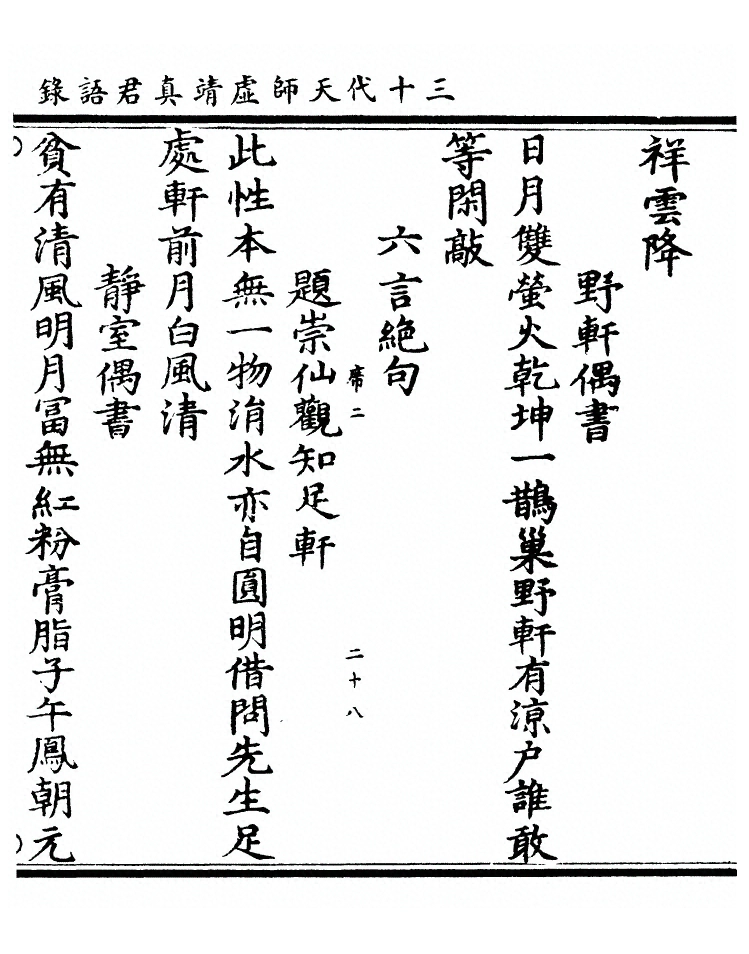 三十代天師虛靖真君語錄
祥雲降
野軒偶書
日月雙螢火乾坤一鵲巢野軒有涼户誰敢
等閑敲
六言絶句
席二
二十八
題崇仙觀知足軒
此性本無一物涓水亦自圓明借問先生足
處軒前月白風清
靜室偶書
貧有清風明月冨無紅粉膏脂子午鳳朝元